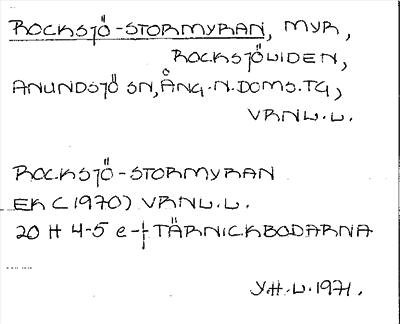 ROCKSJÖ-STORMYRAN, MYR,
ROCKSJÖLIDEN,
ANUNDSJÖ SN, ÅNG. N. DOMS. TG,
VRNL.L.
ROCKSJÖ-STORMYRAN
EK (1970) VRNL.L.
20 H 4-5 e-f TÄRNICKBODARNA
Y.H.L. 1971.